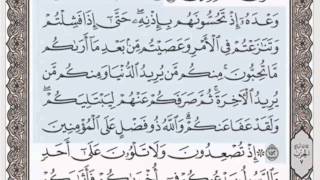 وَعْدَهُۥٓ إِذْ تَحُسُّونَهُم بِإِذْنِهِۦ ۖ حَتَّىٰٓ إِذَا فَشِلْتُمْ
وَتَنَٰزَعْتُمْ فِى ٱلْأَمْرِ وَعَصَيْتُم مِّنۢ بَعْدِ مَآ أَرَىٰكُم
مَّا تُحِبُّونَ ۚ مِنكُم مَّن يُرِيدُ ٱلدُّنْيَا وَمِنكُم مَّن
يُرِيدُ ٱلْءَاخِرَةَ ۚ ثُمَّ صَرَفَكُمْ عَنْهُمْ لِيَبْتَلِيَكُمْ ۖ
وَلَقَدْ عَفَا عَنكُمْ ۗ وَٱللَّهُ ذُو فَضْلٍ عَلَى ٱلْمُؤْمِنِينَ
۝١٥٢ ۞ إِذْ تُصْعِدُونَ وَلَا تَلْوُۥنَ عَلَىٰٓ أَحَدٍ